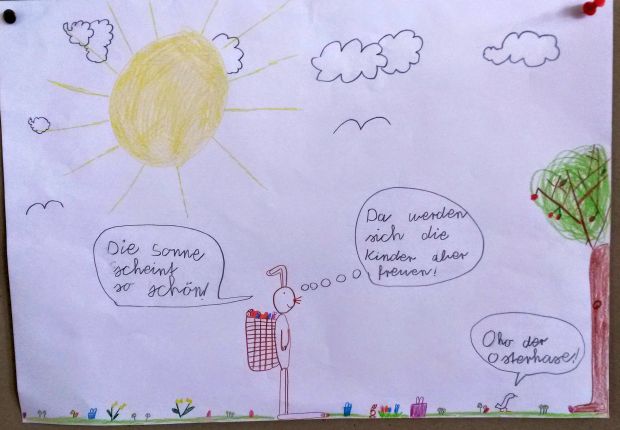 Die Sonne
scheint
so schön
Da werden
sich die
Kinder aber
freuen!
Oho der
Osterhase!